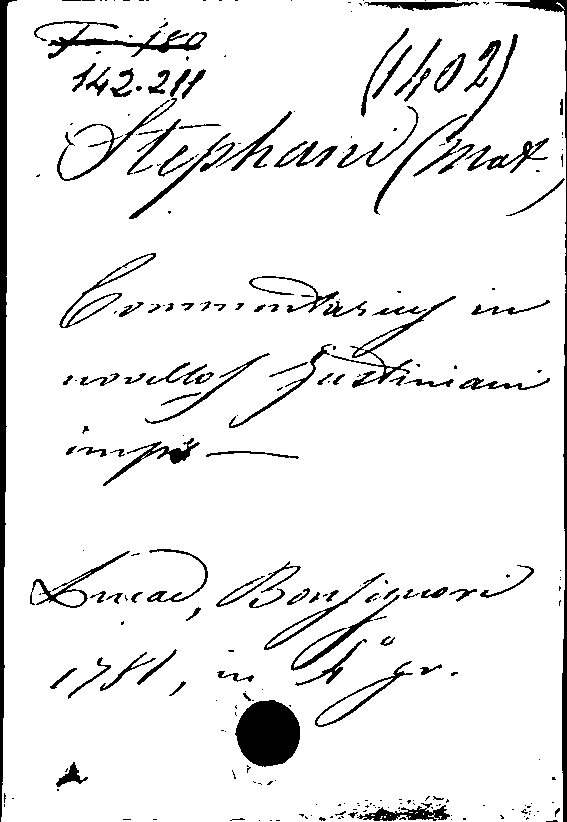 F. 180
142.211 (1402)
Stephani (Mat.)
Commentarius in
novellas Justiniani
impr —
Lucae, Bonsignori
1781, in 4° gr.